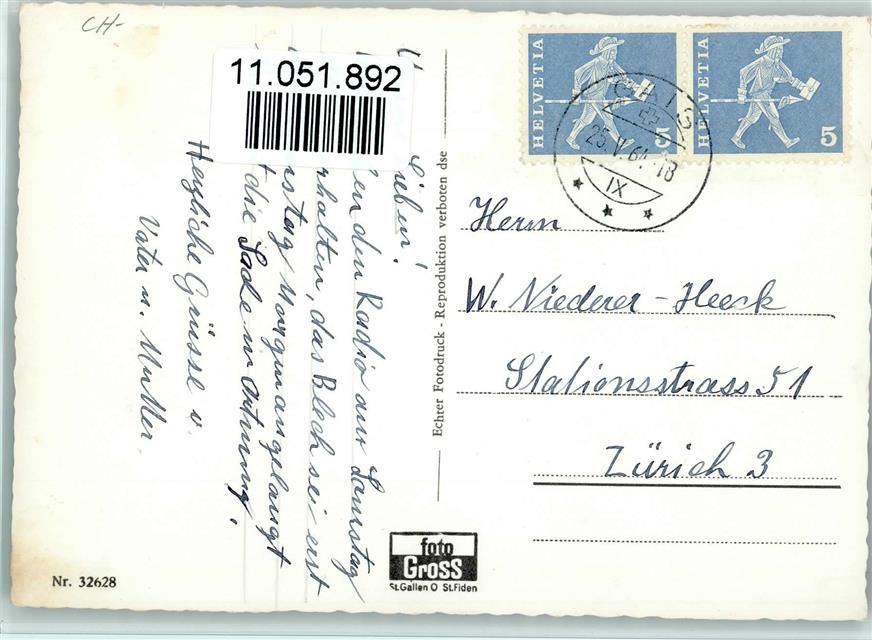 CH-
11.051.892
Lieben!
den Radio am Samstag
erhalten, das Blech sei erst
Morgen angelangt
die Sache in Ortnung.
Herzliche Grüsse v.
Vater u. Mutter.
Echter Fotodruck - Reproduktion verboten dse
HELVETIA 5
HELVETIA 5
25. V. 61. 18
IX
Herrn
W. Niederer-Heeck
Stationsstrass 51
Zürich 3
foto
Gross
St.Gallen O St.Fiden
Nr. 32628